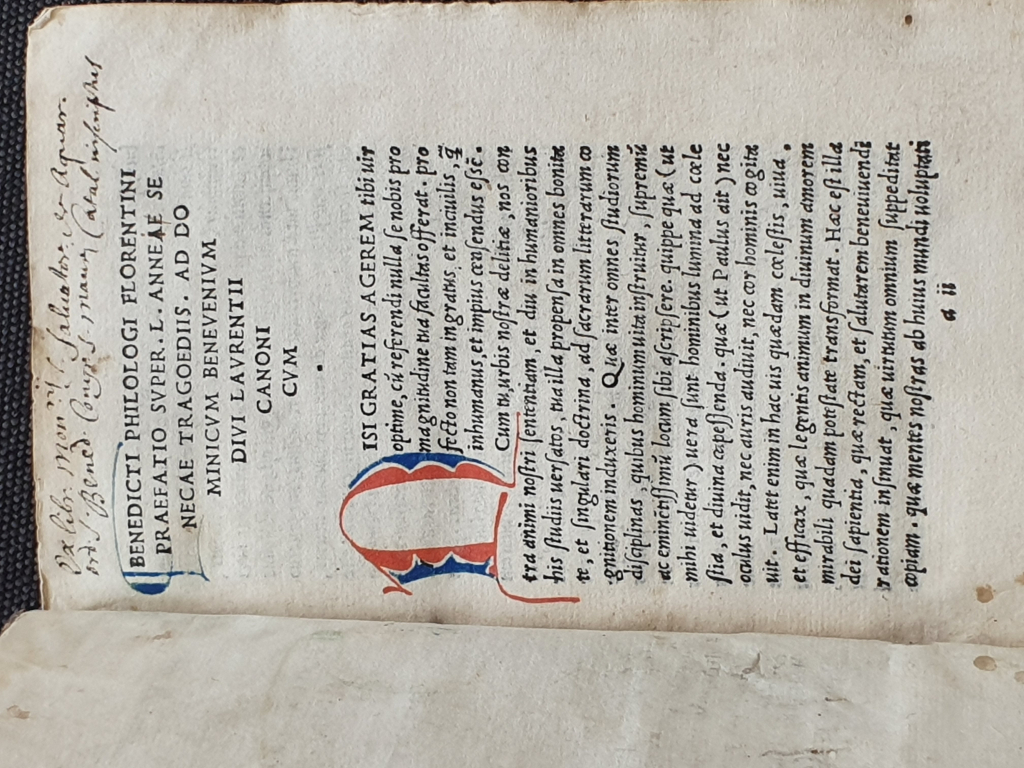 Ex libr. mon. S. Saluatoris
ord. S. Bened. Congreg.
BENEDICTI PHILOLOGI FLORENTINI
PRAEFATIO SVPER. L. ANNEAE SE
NECAE TRAGOEDIIS. AD DO
MINICVM BENEVENIVM
DIVI LAVRENTII
CANONI
CVM
.
NISI GRATIAS AGEREM tibi uir
optime, cũ referendi nulla se nobis pro
magnitudine tua facultas offerat. pro
fecto non tam ingratus, et inciuilis, q̃
inhumanus, et impius cẽsendus essẽ.
Cum tu, urbis nostræ delitiæ, nos con
tra animi nostri sententiam, et diu in humanioribus
his studiis uersatos, tua illa propensa in omnes bonita
te, et singulari doctrina, ad sacrarum litterarum co
gnitionem induxeris. Quæ inter omnes studiorum
disciplinas, quibus hominum uita instruitur, supremũ
ac eminẽtissimũ locum sibi ascripsere. quippe quæ (ut
mihi uidetur) uera sunt hominibus lumina ad cæle
stia, et diuina capessenda. quæ (ut Paulus ait) nec
oculus uidit, nec auris audiuit, nec cor hominis cogita
uit. Latet enim in hac uis quædam cælestis, uiua,
et efficax, quæ legentis animum in diuinum amorem
mirabili quadam potestate transformat. Hæc est illa
dei sapientia, quæ rectam, et salutarem beneuiuendi
rationem insinuat, quæ uirtutum omnium suppeditat
copiam. quæ mentes nostras ab huius mundi uoluptati
a ii